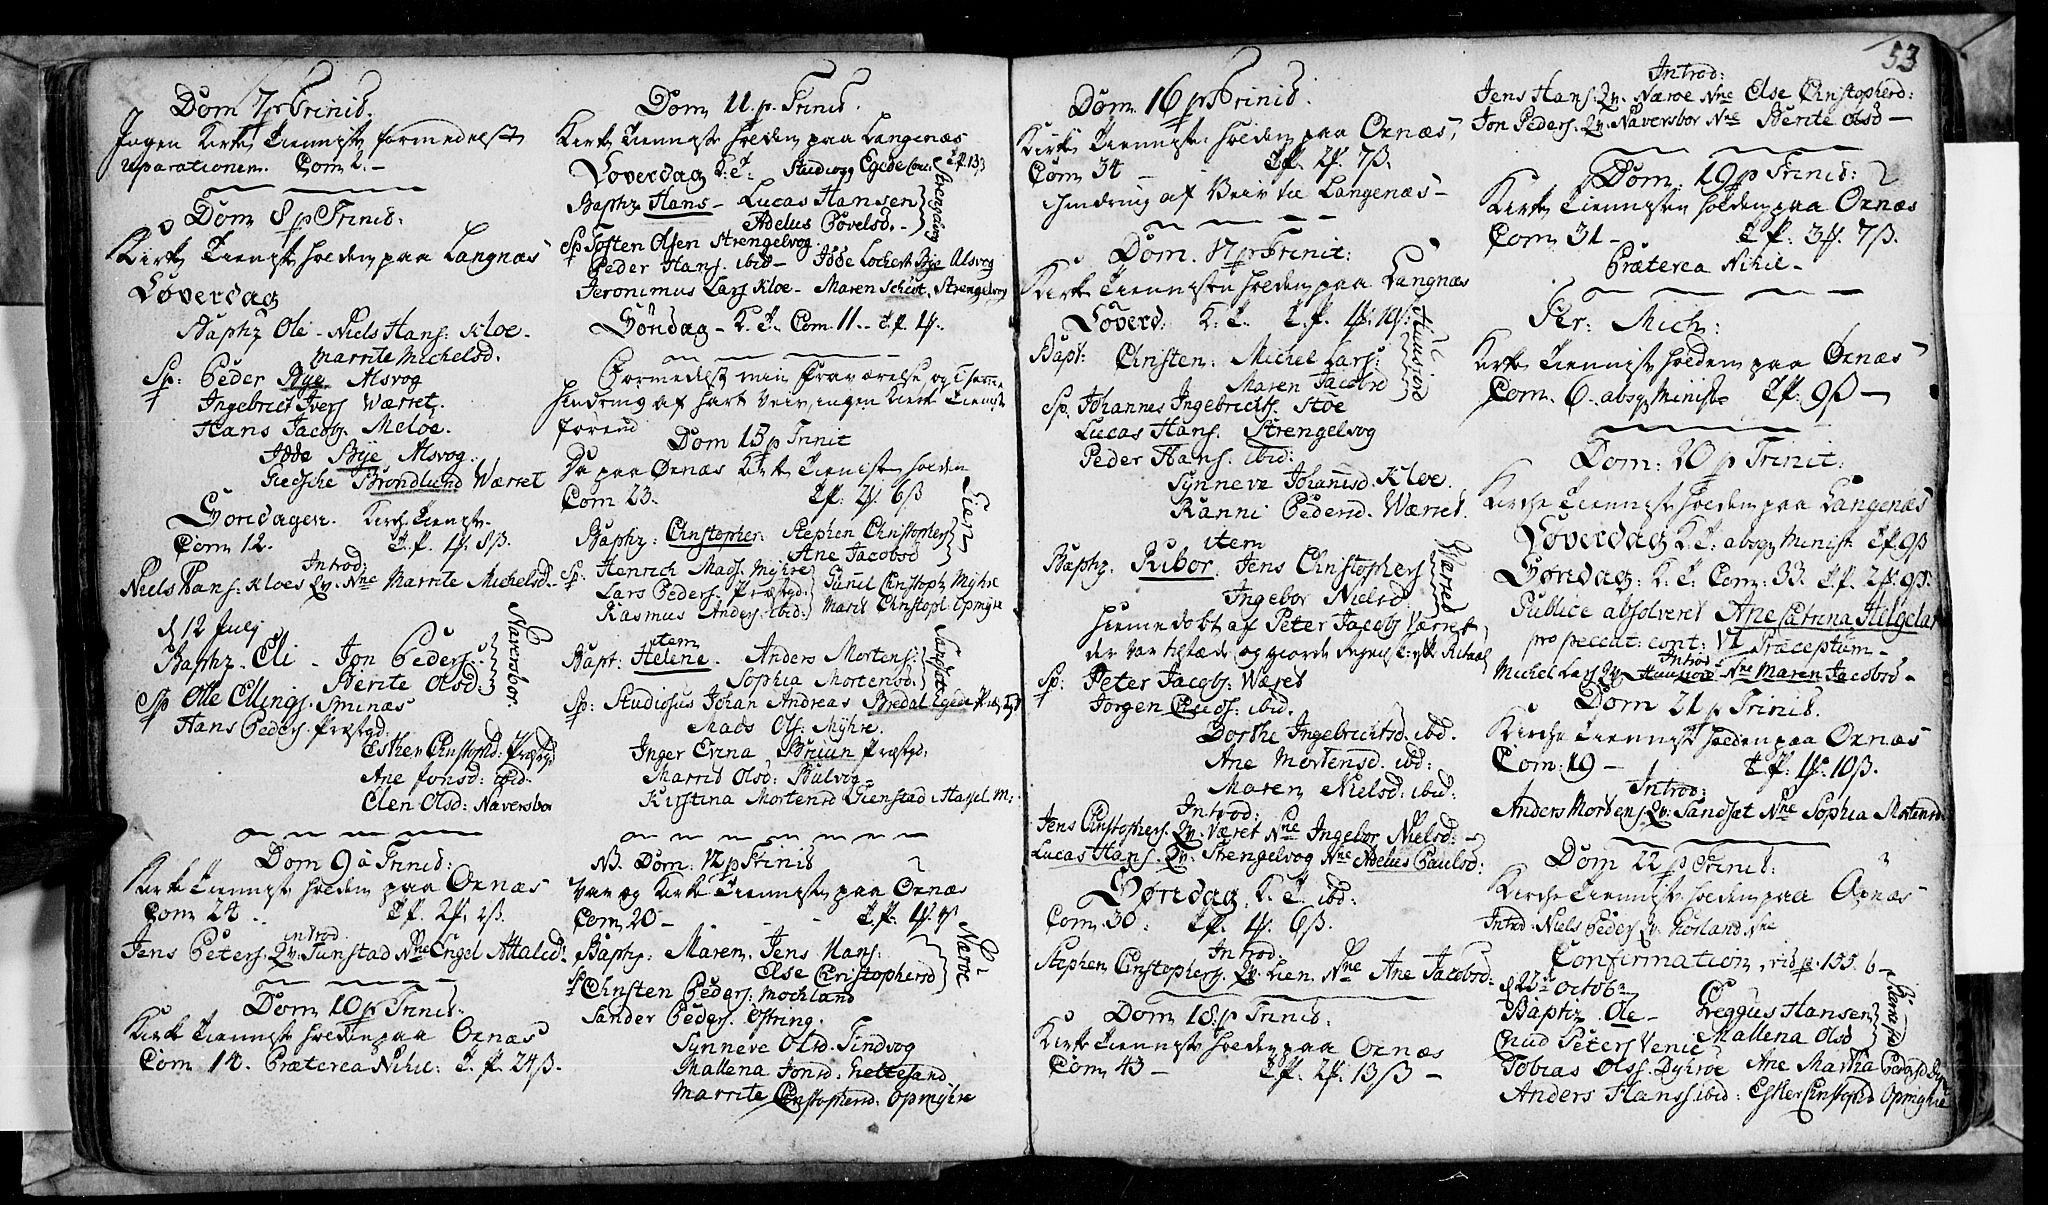 Dom 7 p Trinid.
Ingen Kirke Tienniste formedelst
reparationen. Com 2. -
Dom 8 p Trinid:
Kirke Tienniste holden paa Langnæs
Løverdag
Baptz Ole - Niels Hans: Kloe -
Marrite Michelsd.
Sp: Peder Bye Alsvog
Ingebrict Ivers Wærret
Hans Jacobs. Meloe.
Idde Bye Alsvog.
Giedsche Brondlund Wærret
Søndagen. Kirche Tienniste
Com 12. T.P. 1 8ß.
Introd
Niels Hans: Kloes Qv. Nne Marrite Michelsd -
d 12 Julij
Baptz. Eli - Jon Peders.
Berite Olsd:
Naversbor
Sp Olle Ellings. Minæs
Hans Peders. Præstgd.
Esther Christophd: Præstgd
Ane Jonsd: ibid.
Elen Olsd: Naversbor
Dom 9 à Trinid:
Kirke Tienniste holden paa Ornæs
Com 24 .. T.P. 2
introd
Jens Peters. Qv: Tunstad Nne Engel Attalied:
Dom 10 p Trinid:
Kirke Tienniste holden paa Ornæs
Com 10. Præterea Nihil: T. P. 24ß.
Dom 11. p. Trinid.
Kirke Tienniste holden paa Langenæs
Løverdag K: T: Studiosq Egede Conc. T.P. 13ß
Baptz Hans - Lucas Hansen
Adelus Povelsd. -
Strengelvog
Sp Tosten Olsen Strengelvog
Peder Hans. ibid - Idde Lochert Bye Alsvog
Jeronimus Lars Kloe - Maren Schiøt, Strengelvog
Søndag - K. T. Com. 11. - T.P. 1
Formedelst min Fraværelse, og
hindring af hart Veir, ingen Kirke Tienniste
forend
Dom 15 p Trinit
Da paa Ørnæs Kirke Tienniste holden
Com 23. T.P. 2 6ß
Baptz: Christopher. Stephen Christophers
Ane Jacobsd
Lien
Sp: Henrich Mads. Myhre
Lars Peders. Præstgd. Gunil Christoph. Myhre
Rasmus Anders. ibid. Marit Christoph. Opmyhre
item
Bapt: Helene. Anders Mortens:
Sophia Mortensd:
Sandsæt
Sp: Studiosus Johan Andreas Bredal Egede
Mads Ols: Myhre.
Inger Erina Bruun Præstgd:
Marrid Olsd: Balvog -
Kirstina Mortensd Gienstad i Hassel M:
NB. Dom. 12 p Trinid
Var og Kirke Tienniste paa Ornæs
Com 20 - - - T.P. 1
Baptz: Maren. Jens Hans:
Else Christopherd
Næroe
Sp Christen Peders. Mochland
Sander Peders. Ostring.
Synneve Olsd. Tindvog
Mallena Jonsd: Hellesand
Marrite Christopherd: Opmyhre
Dom 16 p Trinid.
Kirke Tienniste holden paa Ornæs,
Com 34 - T.P. 2 7ß.
Hindring af Veir til Langenæs -
Dom. 17 p Trinit:
Kirke Tiennisten holden paa Langnæs
Løverd: K: T. T.P. 1
Bapt: Christen: Michel Lars:
Maren Jacobsd
Sp. Johannes Ingebrichts. Stöe
Lucas Hans. Strengelvog
Peder Hans. ibid:
Synneve Johannisd. Kloe.
Ranni Pedersd. Wærret.
item
Baptz. Ribor. Jens Christophers
Ingebor Nielsd.
Wæret
Hiemedøbt af Peter Jacobs Værret
der var tilstæde og giorde Regnsk. eft Ritual
Sp: Peter Jacobs: Wæret
Jørgen Chuds: ibid.
Dorthe Ingebrichtsd. ibd.
Ane Mortensd. ibd:
Maren Nielsd: ibid:
Introd:
Jens Christophers. Qv. Været Nne Ingebor Nielsd: -
Lucas Hans. Qv. Strengelvog Nne Adelus Paulsd:
Søndag. K. T. ibd:
Com. 30: T.P. 1 6ß.
Introd
Stephen Christophers. Qv. Lien. Nne Ane Jacobsd.
Dom 18. p Trinid:
Kirke Tienniste holden paa Ornæs
Com 43 - T.P. 2 13ß -
53
Introd:
Jens Hans. Qv. Næroe Nne Else Christopherd:
Jon Peders. Qv. Naversbor Nne Berite Olsd -
Dom: 19 p Trinid:
Kirke Tiennisten holden paa Ornæs
Com 31 - T.P: 3 7ß.
Præterea Nihil -
Fer: Mich:
Kirke Tienniste holden paa Ørnæs
Com. 6. absq Minist T.P. 9ß -
Dom: 20 p Trinit:
Kirche Tienniste holden paa Langenæs
Løverdag K.T: absq Minist T.P. 9ß
Søndag: K. T. Com: 33. T.P. 2 9ß.
Publice absolveret Ane Catrina Helgelat
pro peccat: cont: VI Præceptum -
Introd
Michel Lars Qv. Nne Maren Jacobsd -
Dom 21 p Trinid.
Kirche Tienniste holden paa Ornæs
Com: 19 - T.P. 1 10ß.
Introd:
Anders Mortens Qv: Sandsæt Nne Sophia Mortensd
Dom 22 p Trinid:
Kirche Tienniste holden paa Ornæs
Introd: Niels Peders Qv. Nne
Confirmation, vid p. 155. b -
d 22 Octob:
Baptiz Ole - Greggus Hansen
Mallena Olsd
Chud Peters Venie
Tobias Ols. Dyhroe Ane Martha
Anders Hans: ibid: Esther Christophd Opmyhre